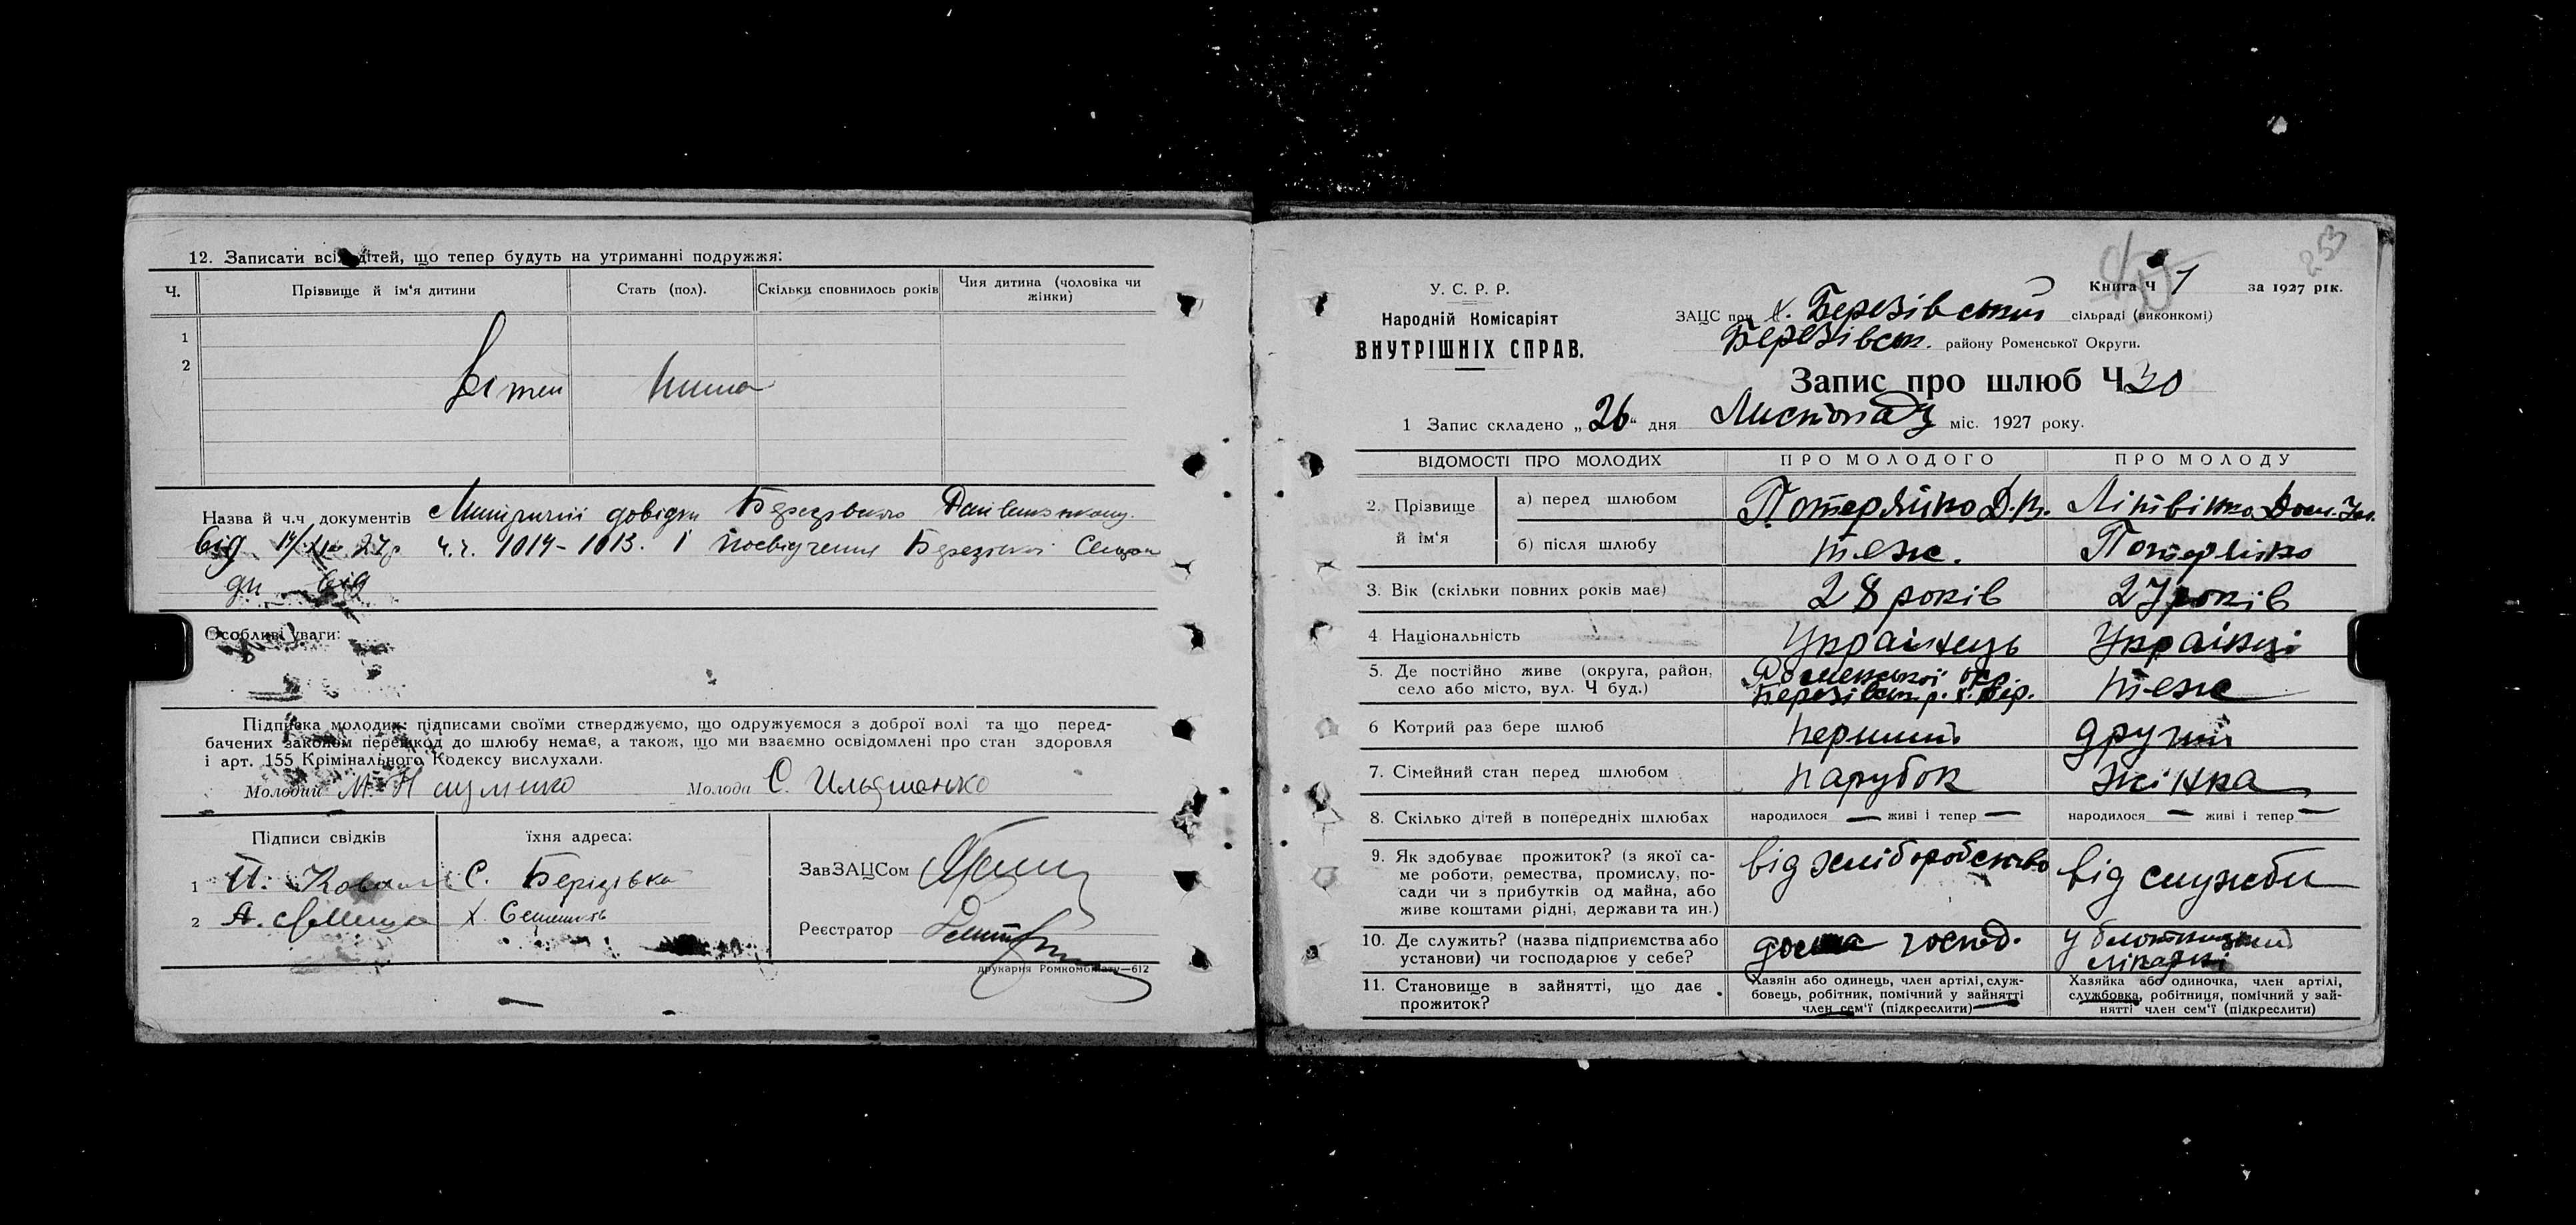 12. Записати всіх дітей, що тепер будуть на утриманні подружжя:
Ч. Прізвище й ім'я дитини Стать (пол). Скільки сповнилось років Чия дитина (чоловіка чи жінки)
1
2
Назва й ч.ч документів довідки
від 27р. ч.ч. 1014-1013. і посвідчення
від
Особливі уваги:
Підписка молодих: підписами своїми стверджуємо, що одружуємося з доброї волі та що перед-
бачених законом перешкод до шлюбу немає, а також, що ми взаємно освідомлені про стан здоровля
і арт. 155 Крімінального Кодексу вислухали.
Молодий М. Науменко Молода С. Ильяшенко
Підписи свідків їхня адреса:
1 С. Березівка
2 А. х.
ЗавЗАЦСом
Реєстратор
друкарня Ромкомбінату—612
253
У. С. Р. Р.
Народній Комісаріят
ВНУТРІШНІХ СПРАВ.
Книга Ч 1 за 1927 рік.
ЗАЦС при х. Березівський сільраді (виконкомі)
Березівськ. району Роменської Округи.
Запис про шлюб Ч 30
1 Запис складено „26" дня Листопада міс. 1927 року.
ВІДОМОСТІ ПРО МОЛОДИХ ПРО МОЛОДОГО ПРО МОЛОДУ
2. Прізвище й ім'я а) перед шлюбом
б) після шлюбу теж.
3. Вік (скільки повних років має) 28 років 27 років
4 Національність Українець Українці
5. Де постійно живе (округа, район, село або місто, вул. Ч буд.) Роменської окр. Березівськ. р. х. Бер. теж
6 Котрий раз бере шлюб перший другий
7. Сімейний стан перед шлюбом парубок жінка
8. Скілько дітей в попередніх шлюбах народилося — живі і тепер — народилося — живі і тепер —
9. Як здобуває прожиток? (з якої са-
ме роботи, ремества, промислу, по-
сади чи з прибутків од майна, або
живе коштами рідні, держави та ин.)
від хліборобство від служби
10. Де служить? (назва підприємства або
установи) чи господарює у себе?
госпód. у лікарні
11. Становище в зайнятті, що дає
прожиток?
Хазяїн або одинець, член артілі, служ-
бовець, робітник, помічний у зайнятті
член сем'ї (підкреслити)
Хазяйка або одиночка, член артілі,
службовка, робітниця, помічний у зай-
нятті член сем'ї (підкреслити)